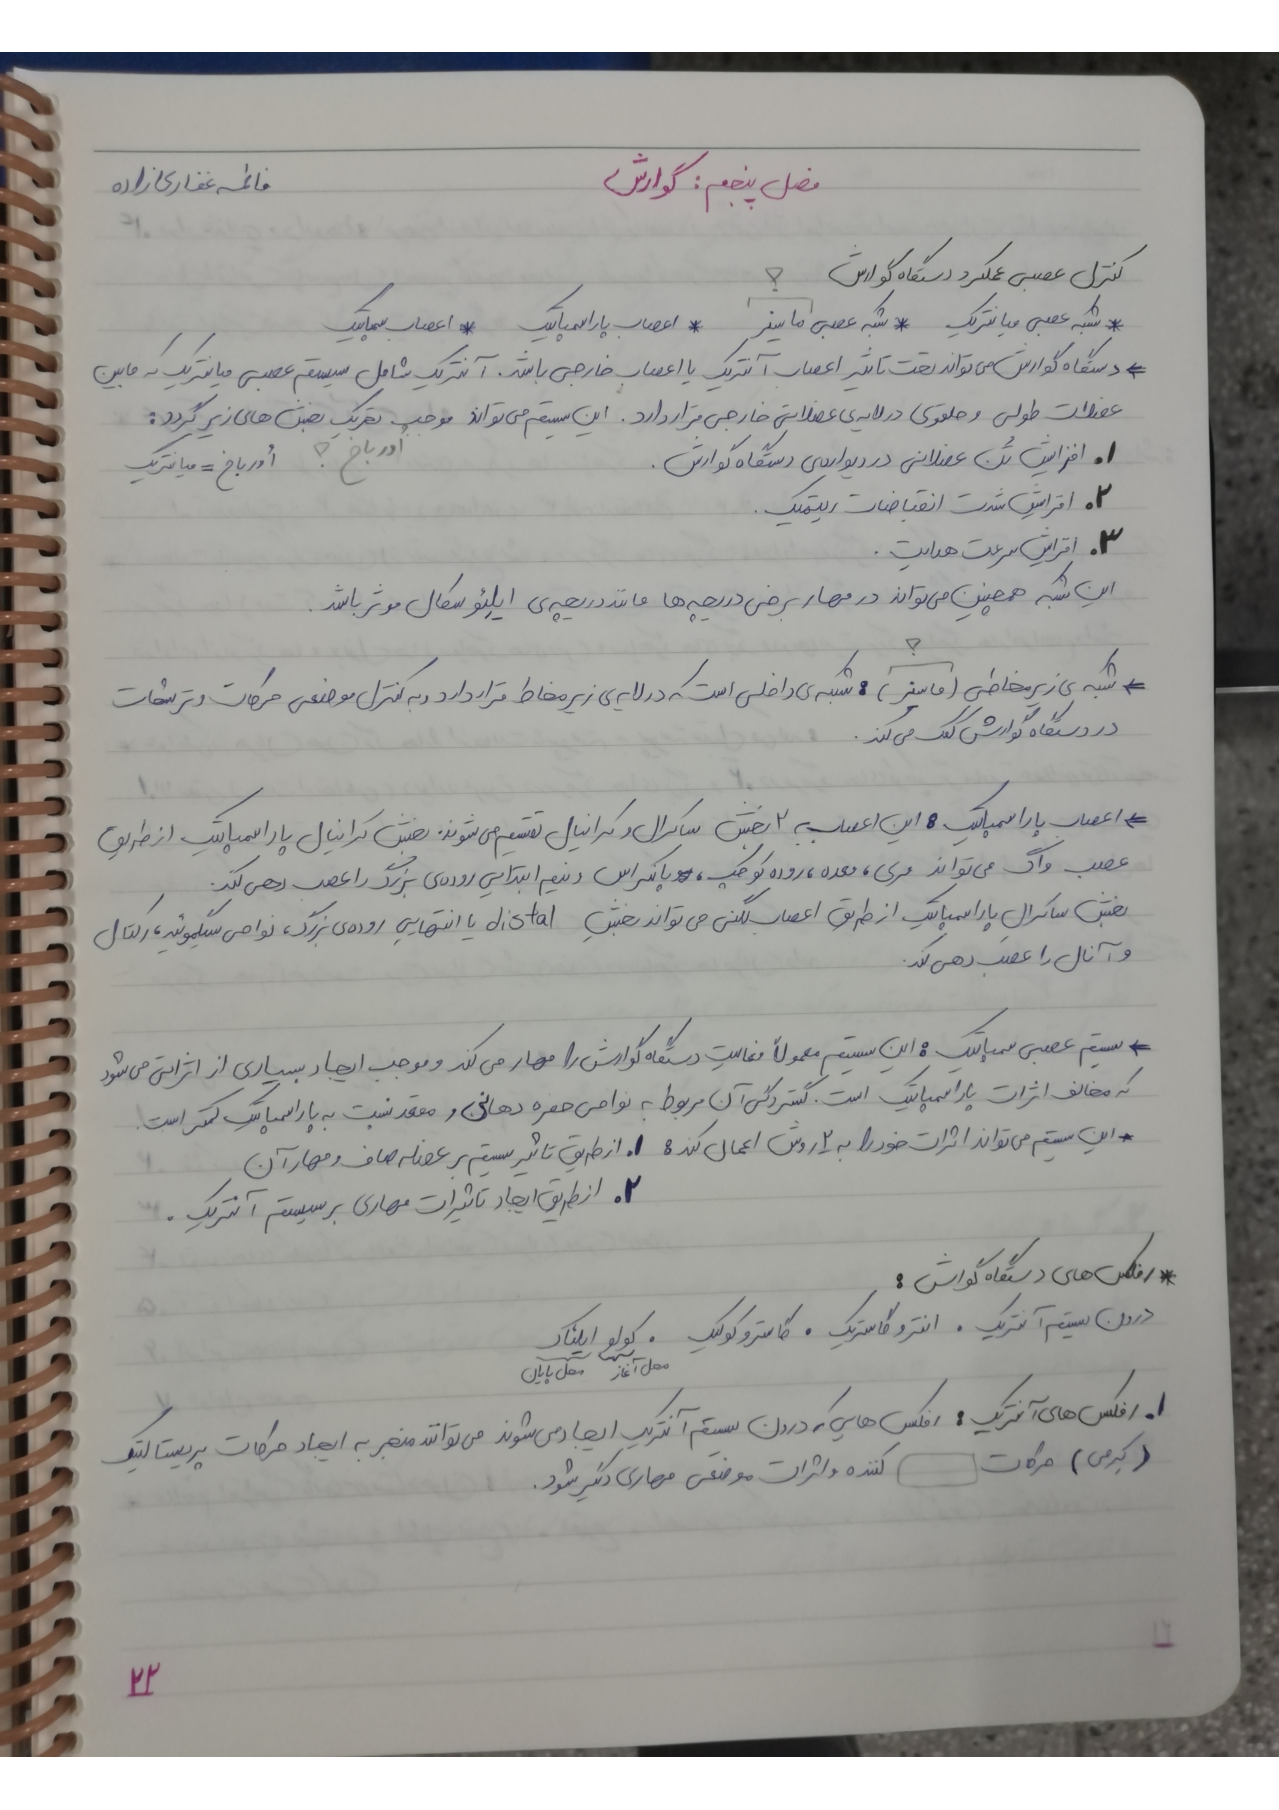 فصل پنجم: گوارش فاطمه غفاری‌زاده
کنترل عصبی عملکرد دستگاه گوارش
؟
* شبکه عصبی میانتریک * شبکه عصبی مایسنر * اعصاب پاراسمپاتیک * اعصاب سمپاتیک
← دستگاه گوارش می‌تواند تحت تاثیر اعصاب آنتریک یا اعصاب خارجی باشد. آنتریک شامل سیستم عصبی میانتریک که مابین
عضلات طولی و حلقوی در لایه‌ی عضلانی خارجی قرار دارد. این سیستم می‌تواند موجب تحریک بخش های زیر گردد:
۱. افزایش تُن عضلانی در دیواره‌ی دستگاه گوارش. اُور باخ ؟ اُور باخ = میانتریک
۲. افزایش شدت انقباضات ریتمیک.
۳. افزایش سرعت هدایت.
این شبکه همچنین می‌تواند در مهار برخی دریچه ها مانند دریچه‌ی ایلئو سکال موثر باشد.
؟
← شبکه ی زیر مخاطی (مایسنر): شبکه‌ی داخلی است که در لایه‌ی زیر مخاط قرار دارد و به کنترل موضعی حرکات و ترشحات
در دستگاه گوارش کمک می‌کند.
← اعصاب پاراسمپاتیک: این اعصاب به ۲ بخش ساکرال و کرانیال تقسیم می‌شوند. بخش کرانیال پاراسمپاتیک از طریق
عصب واگ می‌تواند مری، معده، روده کوچک، پانکراس و نیمه ابتدایی روده‌ی بزرگ را عصب دهی کند.
بخش ساکرال پاراسمپاتیک از طریق اعصاب لگنی می‌تواند بخش distal یا انتهایی روده‌ی بزرگ، نواحی سیگموئید، رکتال
و آنال را عصب دهی کند.
← سیستم عصبی سمپاتیک: این سیستم معمولاً فعالیت دستگاه گوارش را مهار می‌کند و موجب ایجاد بسیاری از اثراتی می‌شود
که مخالف اثرات پاراسمپاتیک است. گستردگی آن مربوط به نواحی حفره دهانی و مقعد نسبت به پاراسمپاتیک کمتر است.
* این سیستم می‌تواند اثرات خود را به ۲ روش اعمال کند: ۱. از طریق تاثیر سیستم بر عضله صاف و مهار آن
۲. از طریق ایجاد تاثیرات مهاری بر سیستم آنتریک.
* رفلکس های دستگاه گوارش:
درون سیستم آنتریک . انترو گاستریک . گاسترو کولیک . کولو ایلئاک
محل آغاز محل پایان
۱. رفلکس های آنتریک: رفلکس هایی که درون سیستم آنتریک ایجاد می‌شوند می‌توانند منجر به ایجاد حرکات پریستالتیک
(کرمی) حرکات کننده و اثرات موضعی مهاری دیگر شود.
۲۲